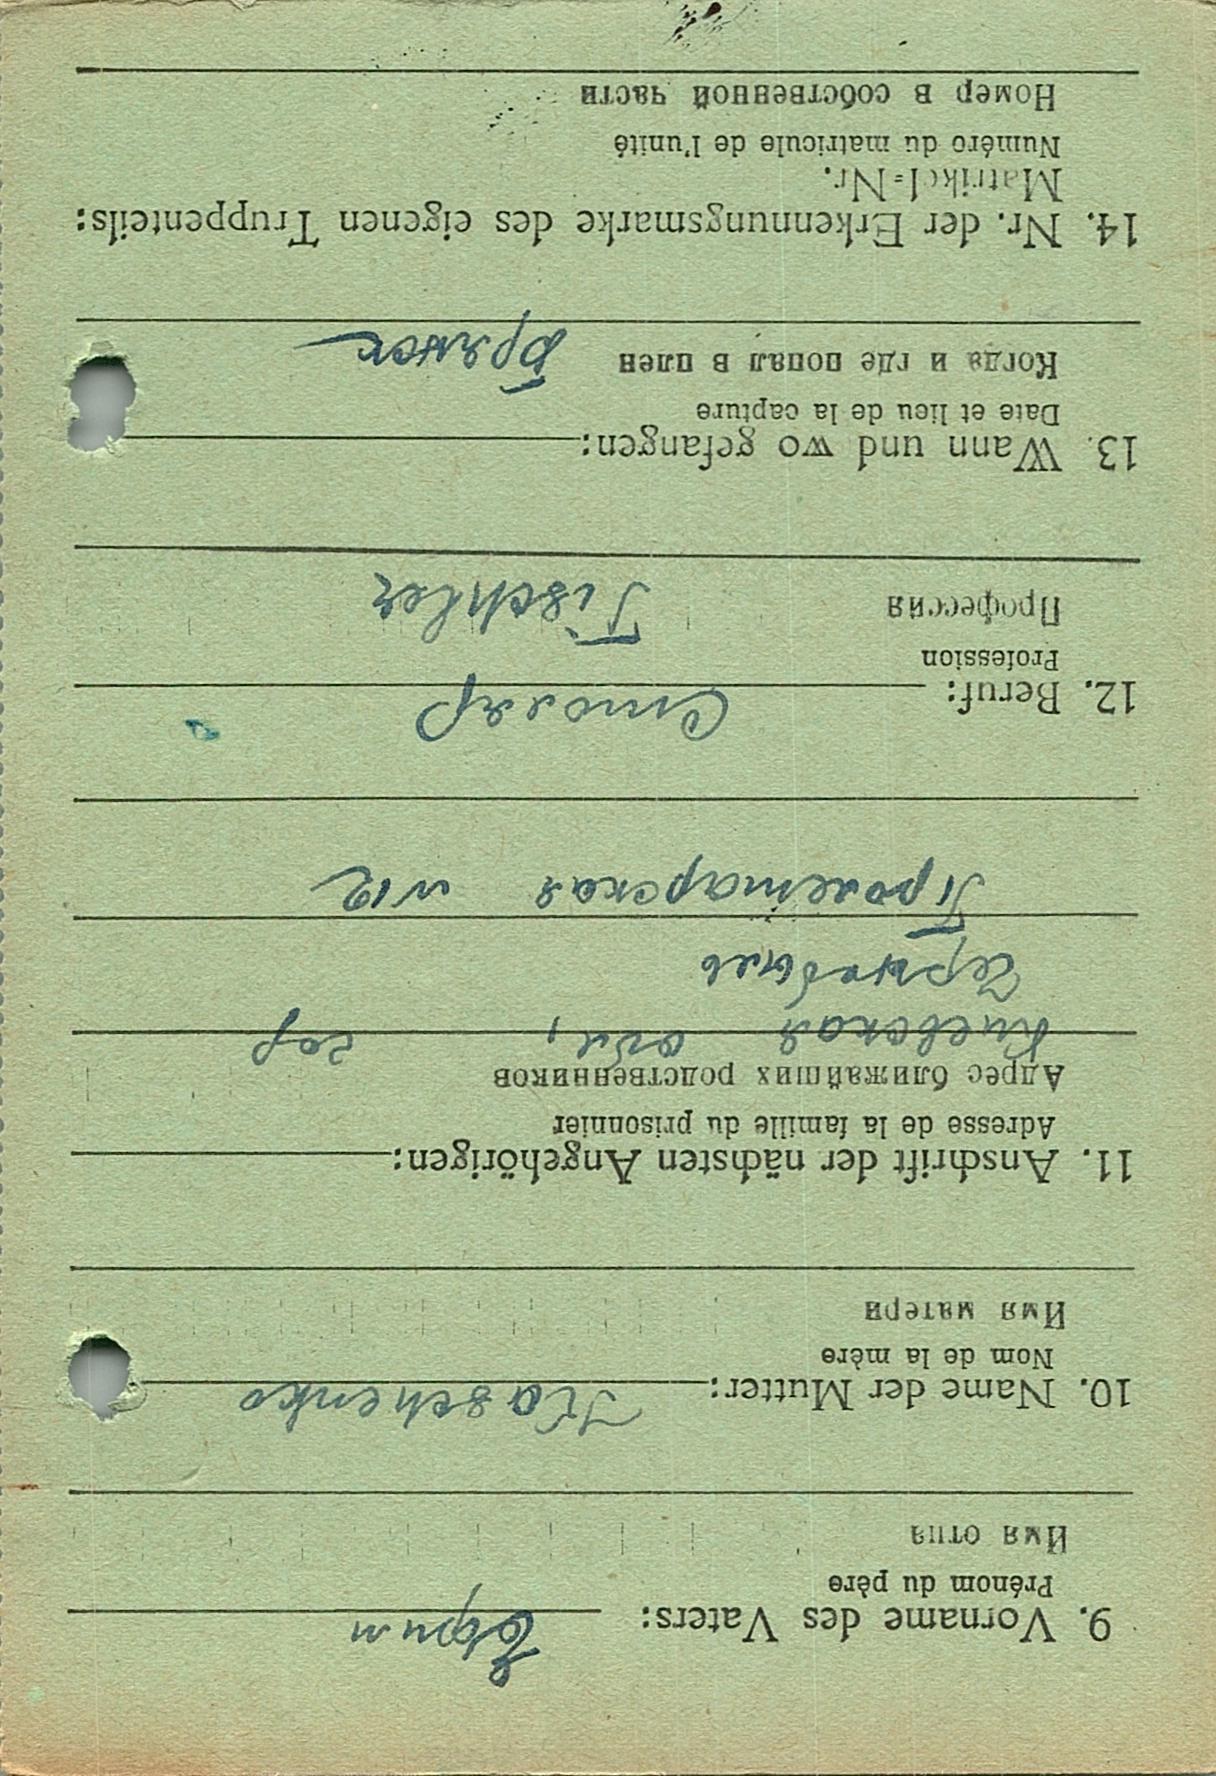 9. Vorname des Vaters: Ефим
Prénom du père
Имя отца
10. Name der Mutter: Kaschenko
Nom de la mère
Имя матери
11. Anschrift der nächsten Angehörigen:
Adresse de la famille du prisonnier
Адрес ближайших родственников
Киевская обл, гор
Чернобыль
Пролетарская N12
12. Beruf: Столяр
Profession
Профессия Tischler
13. Wann und wo gefangen:
Date et lieu de la capture
Когда и где попал в плен Брянск
14. Nr. der Erkennungsmarke des eigenen Truppenteils:
Matrikel=Nr.
Numéro du matricule de l'unité
Номер в собственной части